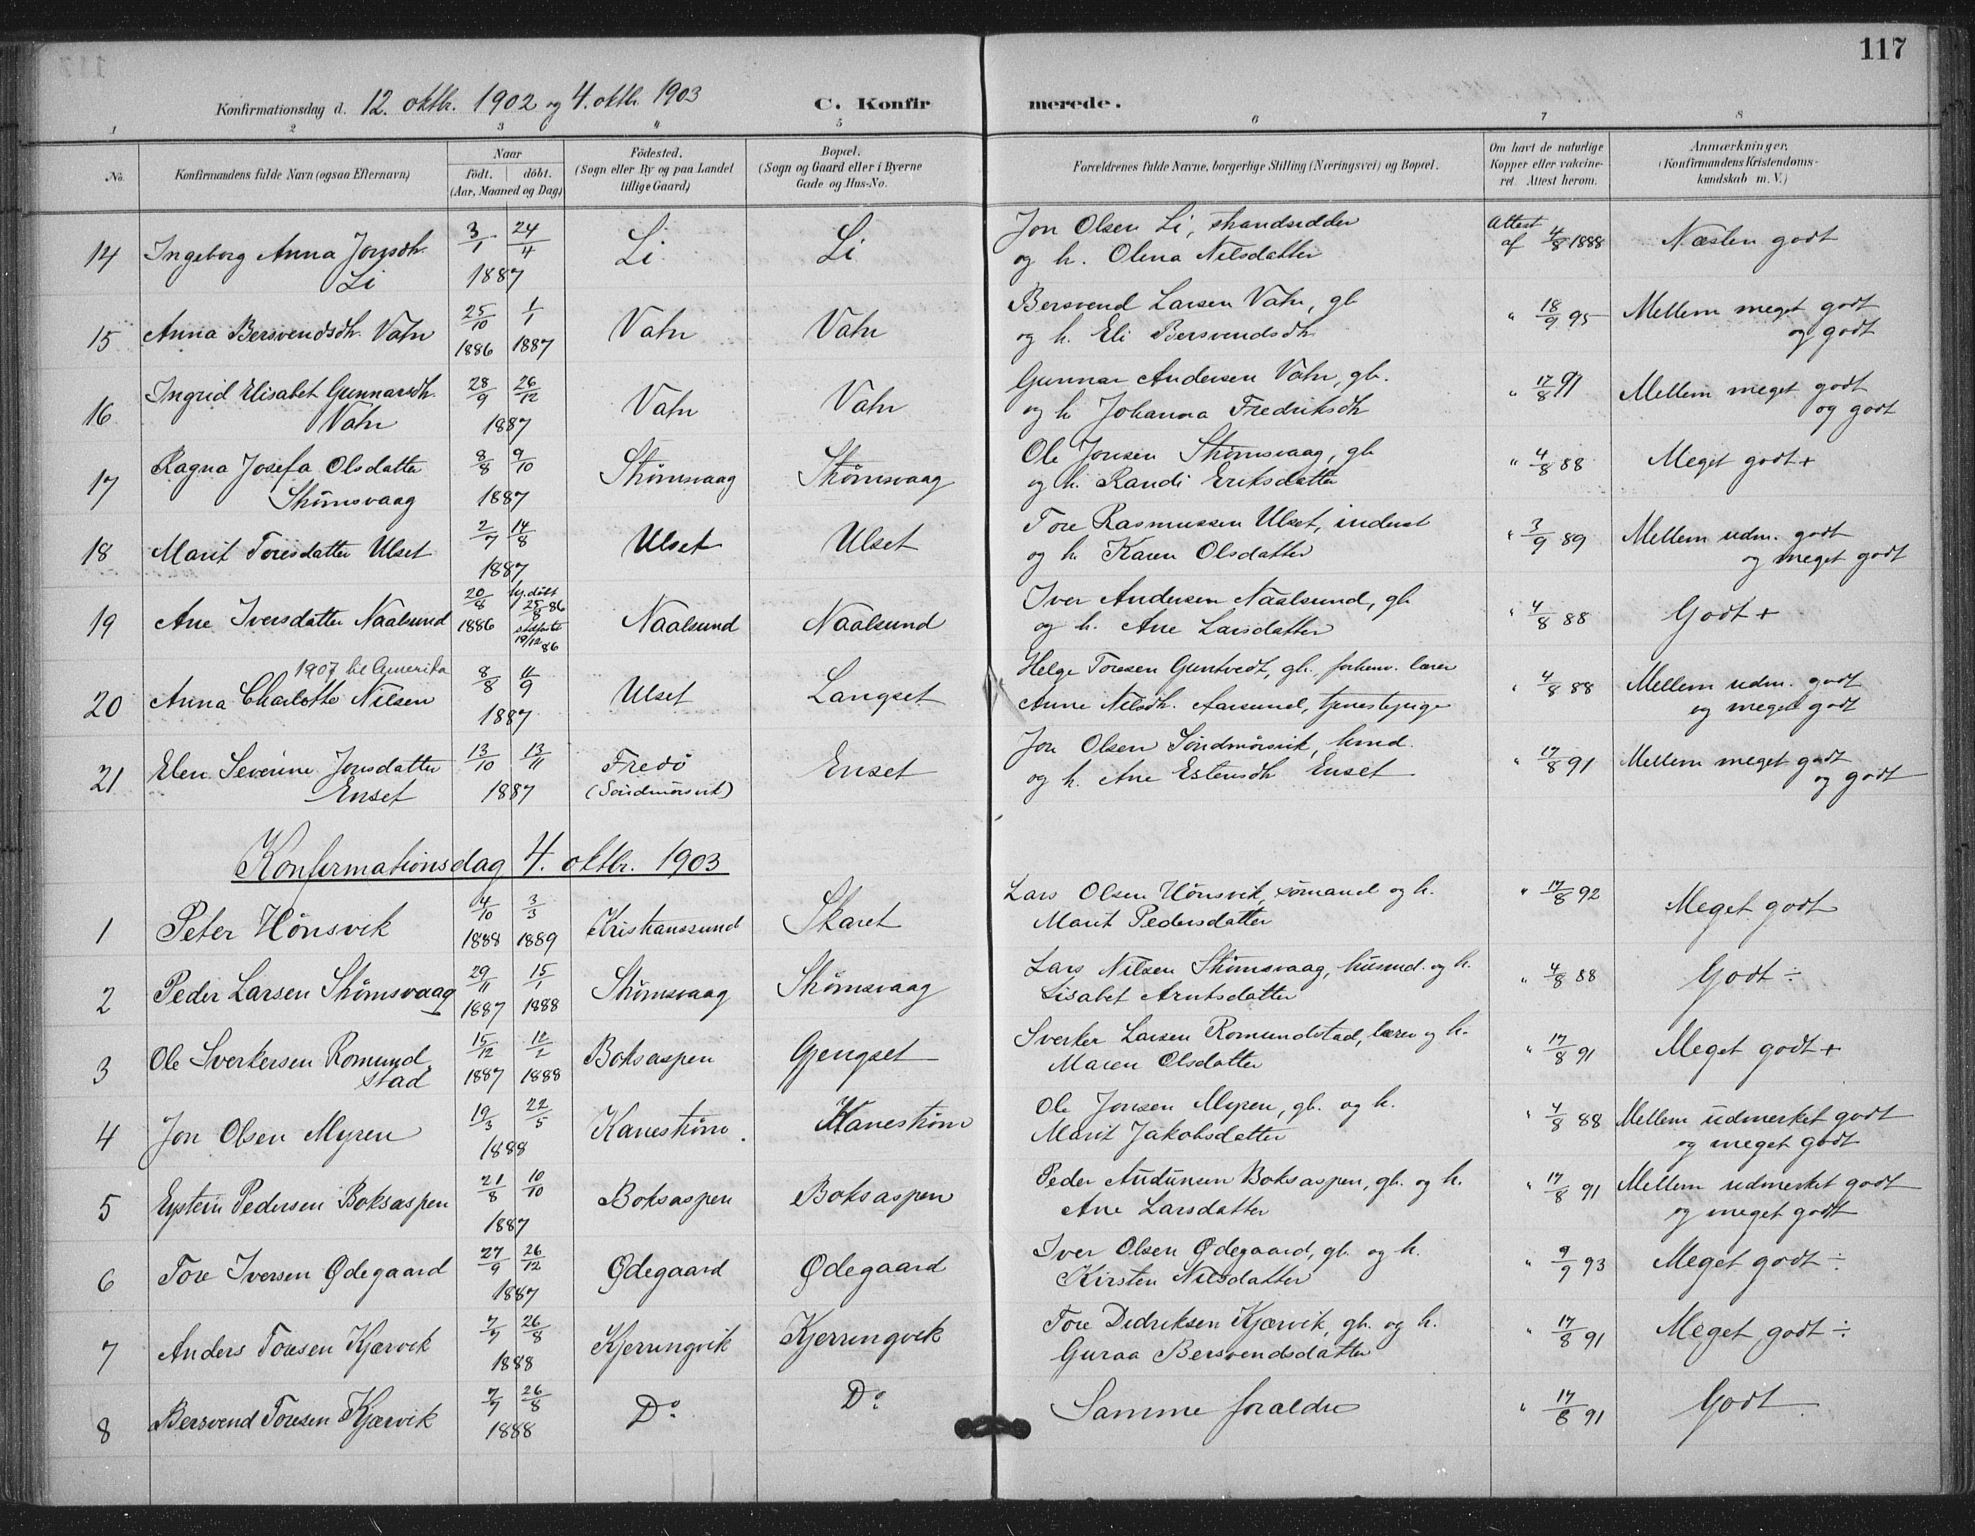 117
Konfirmationsdag d. 12. oktbr. 1902 og 4. oktbr. 1903 C. Konfirmerede.
1 2 3 4 5 6 7 8
No. Konfirmandens fulde Navn (ogsaa Efternavn) Naar födt. döbt. (Aar, Maaned og Dag) Födested. (Sogn eller By og paa Landet tillige Gaard) Bopæl. (Sogn og Gaard eller i Byerne Gade og Hus-No. Forældrenes fulde Navne, borgerlige Stilling (Næringsvei) og Bopæl. Om havt de naturlige Kopper eller vakcineret. Attest herom. Anmærkninger. (Konfirmandens Kristendomskundskab m. V.)
14 Ingeborg Anna Jonsdtr. Li 3/1 24/4 1887 Li Li Jon Olsen Li, strandsidder og h. Olena Nilsdatter Attest af 4/8 1888 Næsten godt
15 Anna Bersvendsdtr. Vatn 25/10 1886 1/1 1887 Vatn Vatn Bersvend Larsen Vatn, gb. og h. Eli Bersvendsdtr. " 18/9 95 Mellem meget godt og godt
16 Ingrid Elisabet Gunnarsdtr. Vatn 28/9 26/12 1887 Vatn Vatn Gunnar Andersen Vatn, gb. og h. Johanna Fredriksdtr " 17/8 91 Mellem meget godt og godt
17 Ragna Josefa Olsdatter Strømsvaag 8/8 9/10 1887 Strømsvaag Strømsvaag Ole Jonsen Strømsvaag, gb. og h. Randi Eriksdatter " 4/8 88 Meget godt +
18 Marit Toresdatter Ulset 2/7 14/8 1887 Ulset Ulset Tore Rasmussen Ulset, inderst og h. Karen Olsdatter " 3/9 89 Mellem udm. godt og meget godt
19 Ane Iversdatter Naalsund 20/8 1886 hj.døbt 25/8 86 stadfæstet 19/12 86 Naalsund Naalsund Iver Andersen Naalsund, gb. og h. Ane Larsdatter " 4/8 88 Godt +
1907 til Amerika
20 Anna Charlotte Nilsen 8/8 11/9 1887 Ulset Langset Helge Toresen Guntvedt, gb. forhenv. lærer Anne Nilsdtr. Aarsund, tjenestepige " 4/8 88 Mellem udm. godt og meget godt
21 Elen Severine Jonsdatter Enset 13/10 13/11 1887 Fredö (Söndmörsvik) Enset Jon Olsen Söndmörsvik, husmd. og h. Ane Estensdtr Enset " 17/8 91 Mellem meget godt og godt
Konfirmationsdag 4. oktbr. 1903
1 Peter Hönsvik 4/10 1888 3/3 1889 Kristianssund Skaret Lars Olsen Hönsvik, sömand og h. Marit Pedersdatter " 17/8 92 Meget godt
2 Peder Larsen Strømsvaag 29/11 1887 15/1 1888 Strømsvaag Strømsvaag Lars Nilsen Strømsvaag, husmd. og h. Lisabet Arntsdatter " 4/8 88 Godt ÷
3 Ole Sverkersen Romundstad 15/12 1887 12/2 1888 Boksaspen Gjengset Sverker Larsen Romundstad, lærer og h. Maren Olsdatter " 17/8 91 Meget godt +
4 Jon Olsen Myren 19/3 22/5 1888 Kanestrøm. Kanestrøm Ole Jonsen Myren, gb. og h. Marit Jakobsdatter " 4/8 88 Mellem udmerket godt og meget godt
5 Eystein Pedersen Boksaspen 21/8 10/10 1887 Boksaspen Boksaspen Peder Audunsen Boksaspen, gb. og h. Ane Larsdatter " 17/8 91 Mellem udmerket godt og meget godt
6 Tore Iversen Ødegaard 27/9 26/12 1887 Ødegaard Ødegaard Iver Olsen Ødegaard, gb. og h. Kirsten Nilsdatter " 9/9 93 Meget godt ÷
7 Anders Toresen Kjærvik 7/7 26/8 1888 Kjerringvik Kjerringvik Tore Didriksen Kjærvik, gb. og h. Guraa Bersvendsdatter " 17/8 91 Meget godt ÷
8 Bersvend Toresen Kjærvik 7/7 26/8 1888 Do. Do. Samme forældre " 17/8 91 Godt